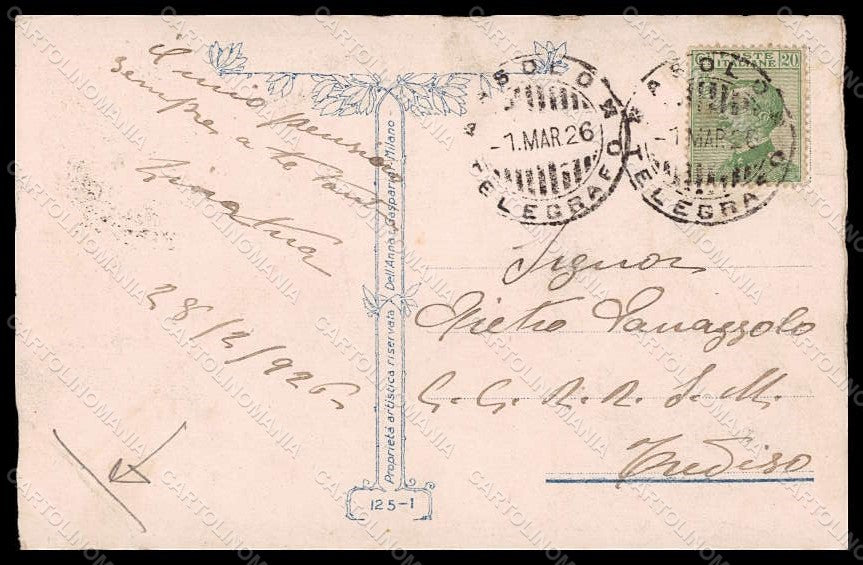 il mio pensiero
sempre a te
28/2/926
Proprietà artistica riservata
Dell'Anna & Gasparini - Milano -
125-1
ASOLO
-1.MAR.26
TELEGRAFO
ASOLO
-1.MAR.26
TELEGRAFO
POSTE
ITALIANE
20
Signor
Pietro
C. C. R. R. S. M.
Treviso
CARTOLINOMANIA